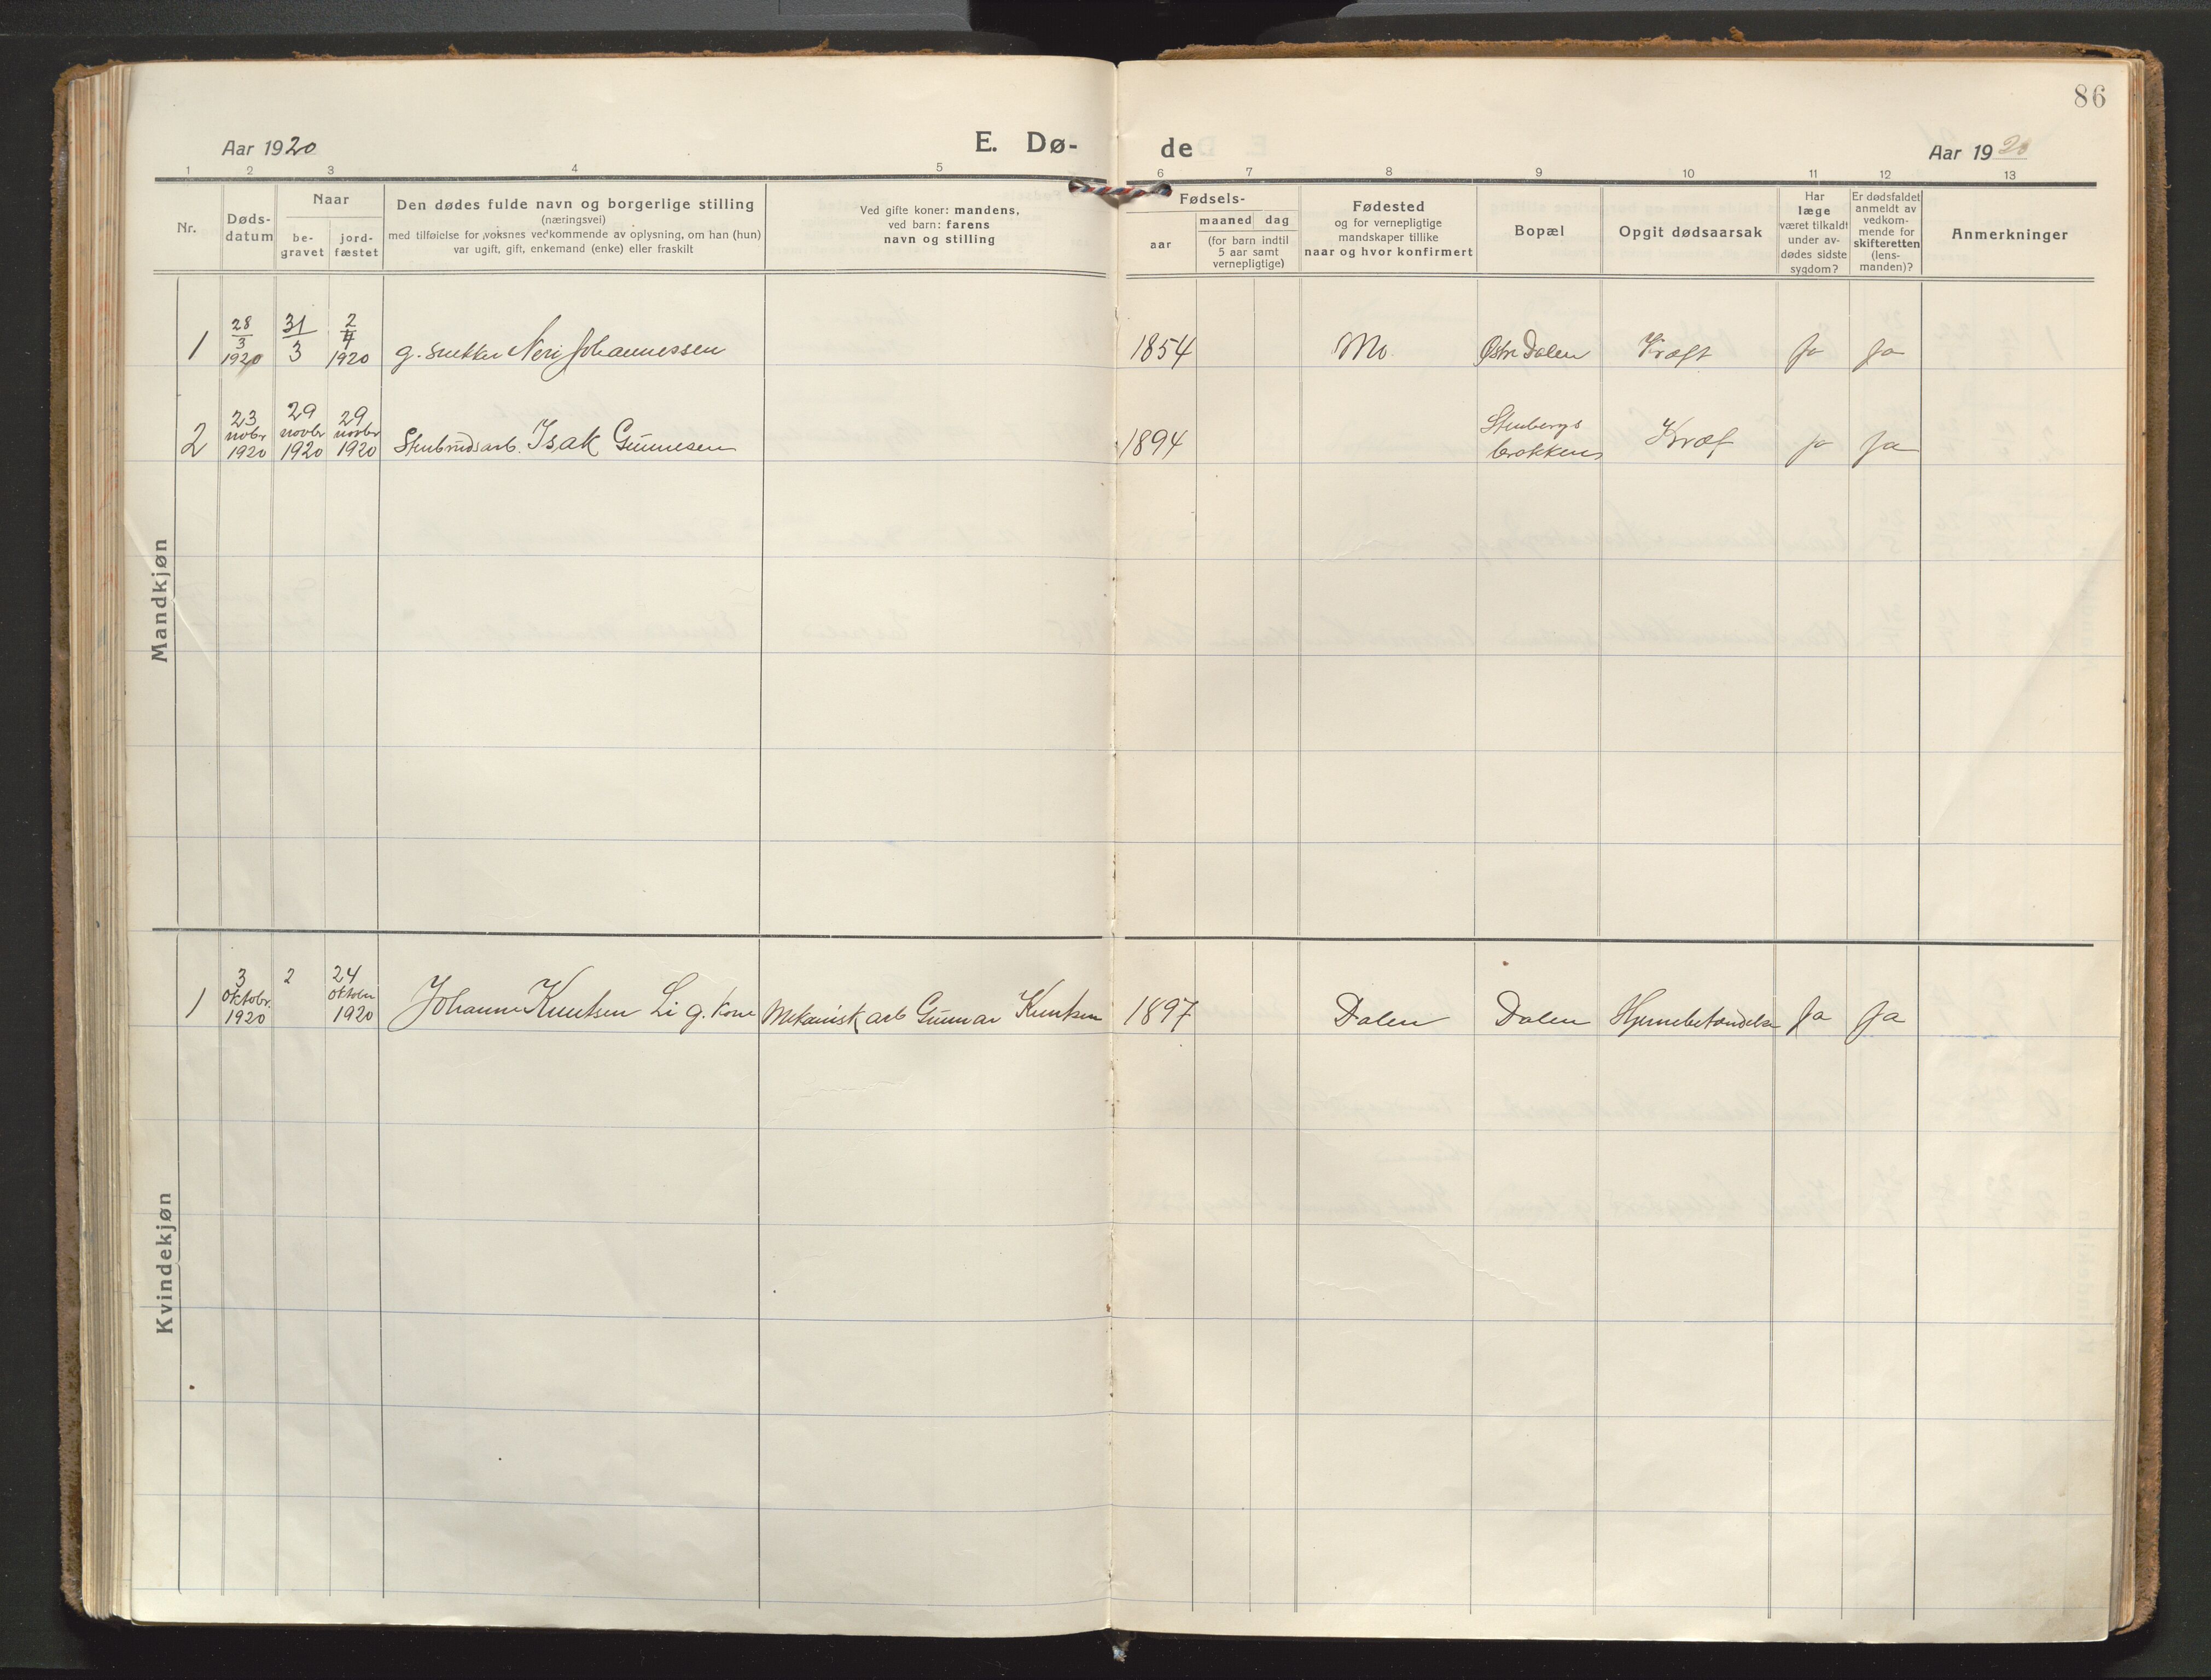 86
Aar 1920
E. Dø-
de
Aar 1920
1 2 3 4 5 6 7 8 9 10 11 12 13
Nr.
Døds-
datum
Naar
be-
gravet
jord-
fæstet
Den dødes fulde navn og borgerlige stilling
(næringsvei)
med tilføielse for voksnes vedkommende av oplysning, om han (hun)
var ugift, gift, enkemand (enke) eller fraskilt
Ved gifte koner: mandens,
ved barn: farens
navn og stilling
Fødsels-
aar
maaned dag
(for barn indtil
5 aar samt
vernepligtige)
Fødested
og for vernepligtige
mandskaper tillike
naar og hvor konfirmert
Bopæl
Opgit dødsaarsak
Har
læge
været tilkaldt
under av-
dødes sidste
sygdom?
Er dødsfaldet
anmeldt av
vedkom-
mende for
skifteretten
(lens-
manden)?
Anmerkninger
Mandkjøn
1 28/3 1920 31/3 2/4 1920 g. snekker Neri Johannessen 1854 Mo Østre Dalen Kræft Ja Ja
2 23 novbr 1920 29 novbr 1920 29 novbr 1920 Stenbrudsarb. Isak Gunnesen 1894 Stenbergs brokkens Kræf Ja Ja
Kvindekjøn
1 3 oktobr. 1920 2 24 oktober 1920 Johanne Knutsen Li g. kone Mekanisk arb Gunnar Knutsen 1897 Dalen Dalen Hjernebetændelse Ja Ja